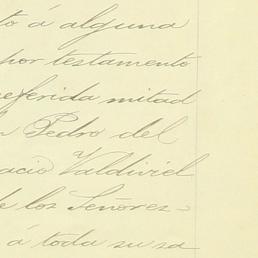 to á alguna
por testamento
referida mitad
Pedro del
acio Valdiviel
de los Señores-
á toda su sa